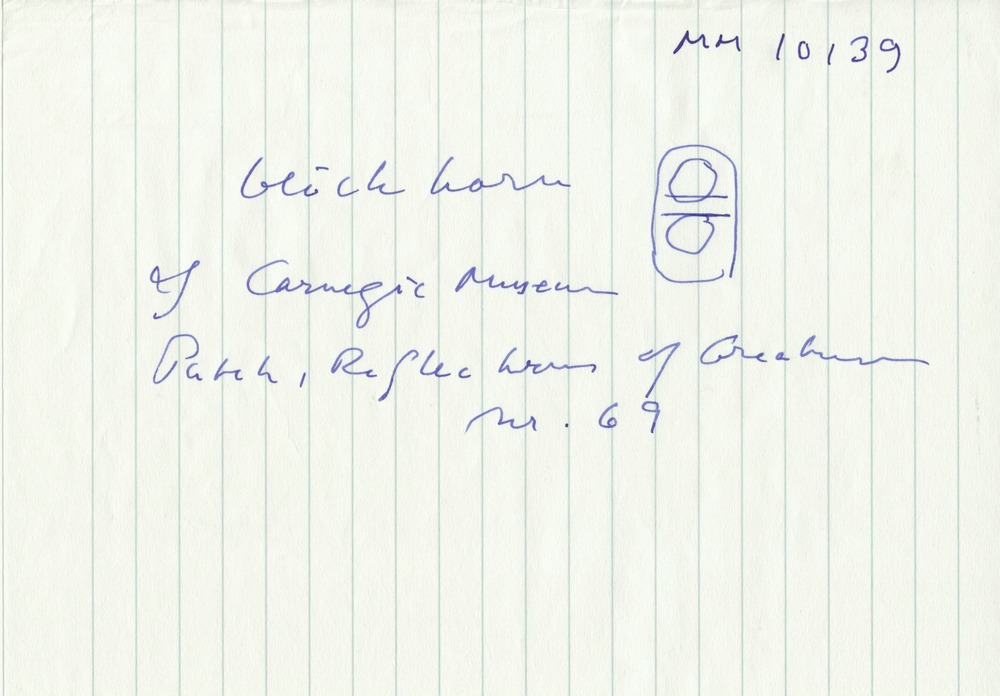 MM 10139
bläckhorn
cf Carnegie Museum
Patch, Reflections of Greatness
nr. 69